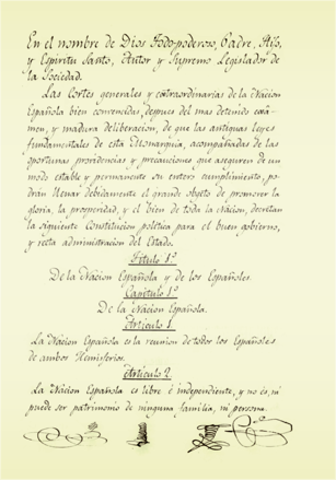 En el nombre de Dios Todo-poderoso, Padre, Hijo,
y Espiritu Santo, Autor y Supremo Legislador de
la Sociedad.
Las Cortes generales y extraordinarias de la Nacion
Española bien convencidas, despues del mas detenido exâ-
men, y madura deliberacion, de que las antiguas leyes
fundamentales de esta Monarquia, acompañadas de las
oportunas providencias y precauciones que aseguren de un
modo estable y permanente su entero cumplimiento, po-
drán llenar debidamente el grande objeto de promover la
gloria, la prosperidad, y el bien de toda la Nacion, decretan
la siguiente Constitucion politica para el buen gobierno,
y recta administracion del Estado.
Titulo 1º
De la Nacion Española y de los Españoles
Capitulo 1º
De la Nacion Española.
Articulo 1.
La Nacion Española es la reunion de todos los Españoles
de ambos Hemisferios.
Articulo 2.
La Nacion Española es libre é independiente, y no es, ni
puede ser patrimonio de ninguna familia, ni persona.